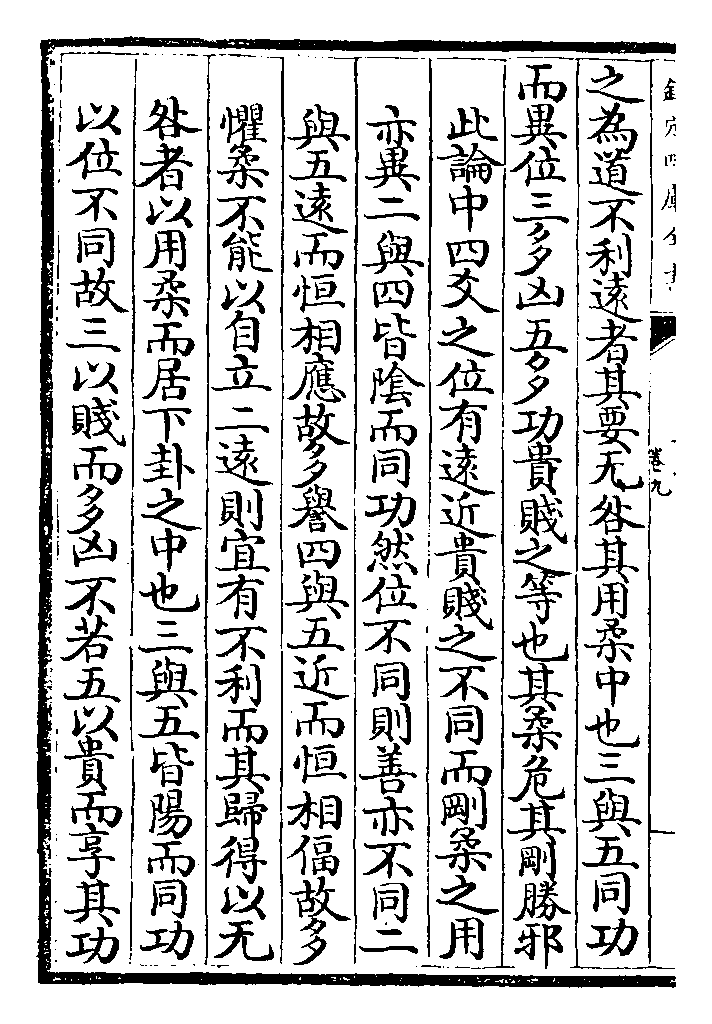 之為道不利遠者其要无咎其用柔中也三與五同功
而異位三多凶五多功貴賤之等也其柔危其剛勝邪
此論中四爻之位有遠近貴賤之不同而剛柔之用
亦異二與四皆陰而同功然位不同則善亦不同二
與五遠而恒相應故多譽四與五近而恒相偪故多
懼柔不能以自立二遠則宜有不利而其歸得以无
咎者以用柔而居下卦之中也三與五皆陽而同功
以位不同故三以賤而多凶不若五以貴而享其功
卷九